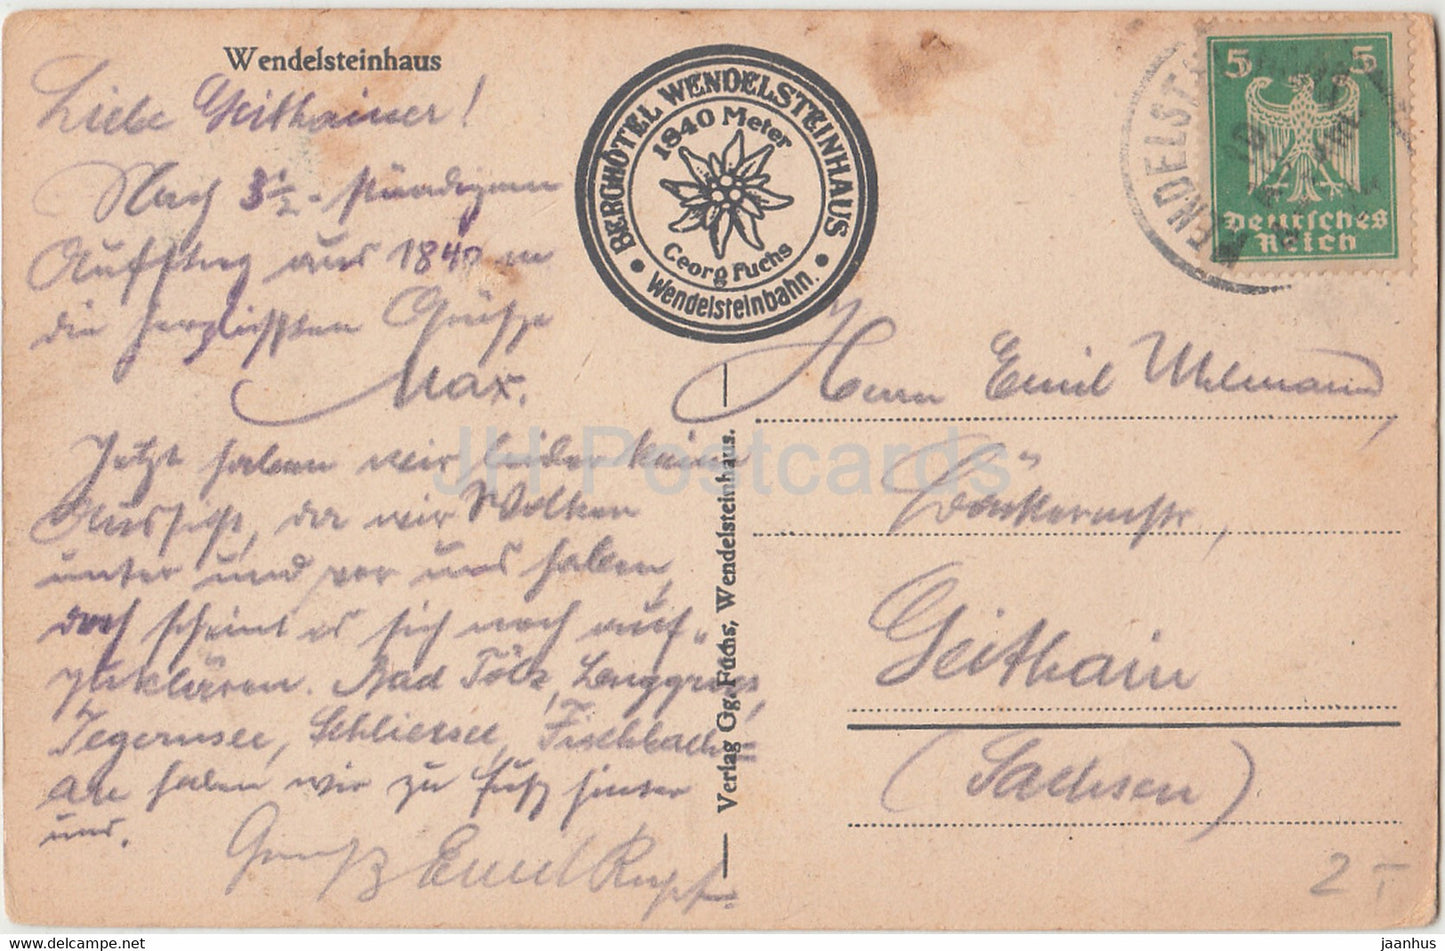 Wendelsteinhaus
Liebe Geithainer!
Nach 3½-stündigem
Aufstieg aus 1840 m
die herzlichsten Grüße
Max.
Jetzt haben wir leider keine
Aussicht, da wir Wolken
unter und vor uns haben,
doch scheint es sich noch auf-
zuklären. Bad Tölz, Lenggries,
Tegernsee, Schliersee, Fischbach=
au haben wir zu Fuß hinter
uns.
Gruß Emil
BERGHOTEL WENDELSTEINHAUS
1840 Meter
Georg Fuchs
Wendelsteinbahn.
Verlag Gg. Fuchs, Wendelsteinhaus.
WENDELST
5 5
Deutsches
Reich
Herrn Emil Uhlmann,
Geithain
(Sachsen)
2
JH Postcards
https://www.delcampe.net
jaanhus